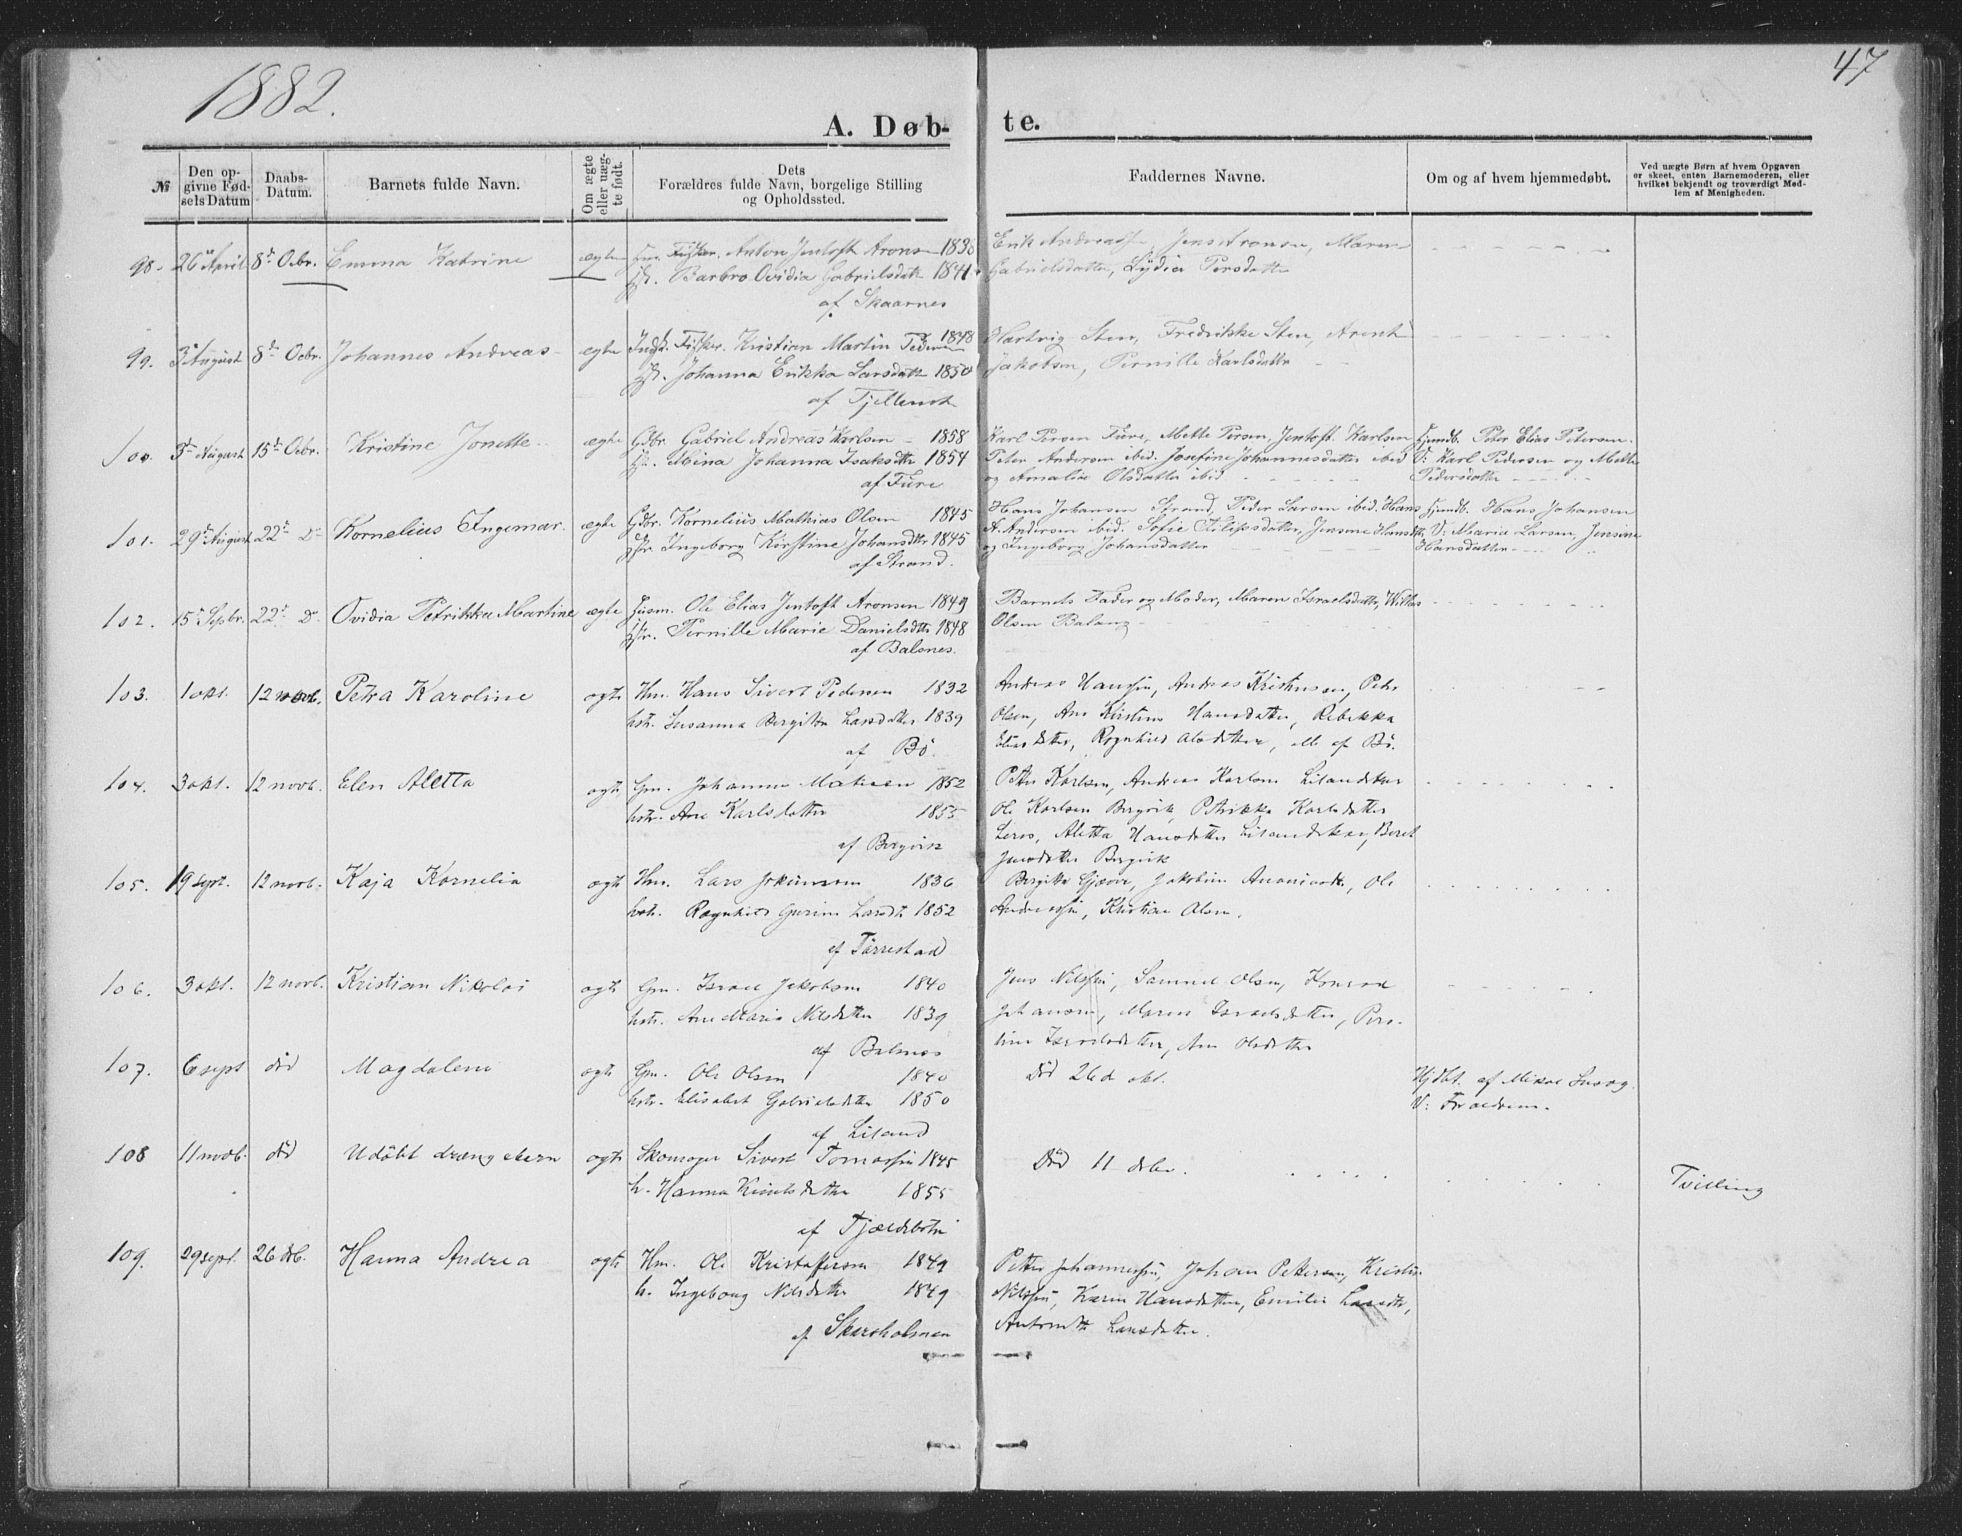 1882.
47
A. Døb-
te.
№
Den op-
givne Fød-
sels Datum
Daabs-
Datum.
Barnets fulde Navn.
Om ægte
eller uæg-
te født.
Dets
Forældres fulde Navn, borgelige Stilling
og Opholdssted.
Faddernes Navne.
Om og af hvem hjemmedøbt.
Ved uægte Børn af hvem Opgaven
er skeet, enten Barnemoderen, eller
hvilket bekjendt og troværdigt Med-
lem af Menigheden.
98. 26 April 8de Ocbr. Emma Katrine ægte Fisker. Anton Jentoft Arons 1838
Barbro Ovidia Gabrielsdtr 1841
af Skaarnes
Erik Andreas, Jens Aronsen, Maren
Gabrielsdatter, Lydia Persdatter
99. 3 August 8de Ocbr. Johannes Andreas ægte Indst. Fisker. Kristian Martin Peders 1848
Johanna Erikka Larsdatter 1850
af Tjellenes
Hartvig Sten, Fredrikke Sten, Arent
Jakobsen, Pernille Karlsdatter
100. 3de August 15de Ocbr. Kristine Jonette ægte Gdbr. Gabriel Andreas Karlsen 1858
Mina Johanna Isaksdtr 1854
af Fure
Karl Persen Fure, Mette Persen, Jentoft Karlsen
Peter Andersen ibid. Josefine Johannesdatter ibid
og Amalia Olsdatter ibid
Hjmdb. Peter Elias Petersen.
V: Karl Pedersen og Mette
Pedersdatter
101. 29de August 22de Do Kornelius Ingemar ægte Gdbr. Kornelius Mathias Olsen 1845
Ingeborg Kirstine Johansdtr 1845
af Strand.
Hans Johansen Strand, Peder Larsen ibid. Hans
A. Andersen ibid. Sofie Filipsdatter, Jensine Hansdtr
og Ingeborg Johansdatter
Hjmdb. Hans Johansen
V: Maria Larsen, Jensine
Hansdatter
102. 15de Sepbr. 22de Do Ovidia Petrikka Martine ægte Husm. Ole Elias Jentoft Aronsen 1849
Pernille Marie Danielsdtr 1848
af Balsnes.
Barnets Fader og Moder, Maren Israelsdatter, Willas
Olsen Balang
103. 1 okt. 12 novb. Petra Karoline ægte Hm. Hans Sivert Pedersen 1832
hstr. Susanna Bergitte Larsdatter 1839
af Bö.
Andreas Hanssen, Andreas Kristiansen, Peter
Olsen, Ane Kirstine Hansdatter, Rebekka
Eliasdatter, Ragnhild Olsdatter, alle af Bö.
104. 3 okt. 12 novb. Elen Aletta ægte Gm. Johannes Matisen 1852
hstr. Ane Karlsdatter 1855
af Bergvik
Petter Karlsen, Andreas Karlsen Lilandskar
Ole Karlsen Bergvik, Petrikka Karlsdatter
Leros, Aletta Hansdatter Lilandskar, Beret
Jensdatter Bergvik
105. 19 sept. 12 novb. Kaja Kornelia ægte Hm. Lars Jokumsen 1836
hstr. Ragnhild Gurine Larsdtr 1852
af Törrestad
Bergitte Gjæver, Jakobine Ananiasdtr., Ole
Andreassen, Kristian Olsen.
106. 3 okt. 12 novb. Kristian Nikolai ægte Gm. Israel Jakobsen 1840
hstr. Ane Maria Nilsdatter 1839
af Balsnes
Jens Nilssen, Samuel Olsen, Konrad
Johansen, Maren Israelsdatter, Pero-
line Israelsdatter, Ane Olsdatter
107. 6 sept död Magdalena ægte Gm. Ole Olsen 1840
hstr. Elisabet Gabrielsdatter 1850
af Liland
Död 26de okt.
Hjdbt. af Mikal Snoog.
V: Forældrene.
108 11 novb. död Udöbt drængebarn ægte Skomager Sivert Tomassen 1845
h. Hanna Knutsdatter 1855
af Tjældebotn
Död 11 dcbr.
Tvilling
109. 29 sept. 26 dcb. Hanna Andrea ægte Hm. Ole Kristoffersen 1849
h. Ingeborg Nilsdatter 1849
af Skarsholmen
Petter Johannessen, Johan Pettersen, Kristian
Nilssen, Karen Hansdatter, Emilie Larsdtr,
Antonette Larsdatter.